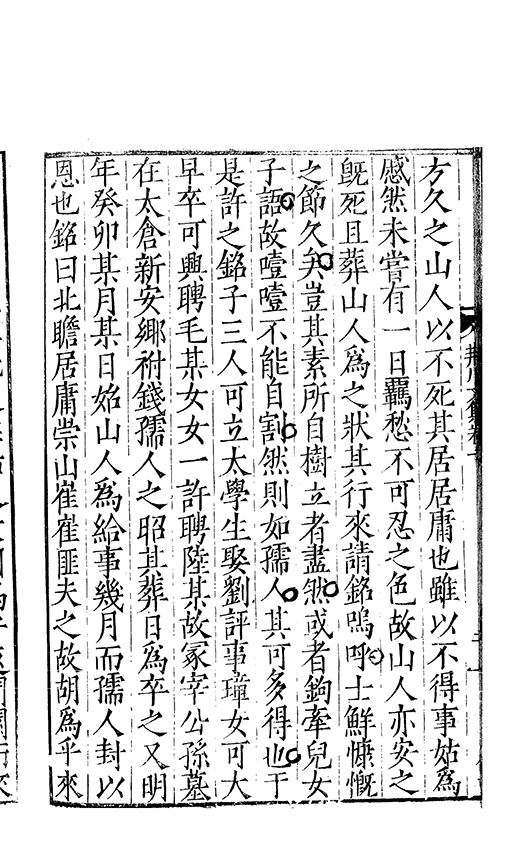 方久之山人以不死其居居庸也雖以不得事姑爲
慼然未嘗有一日羈愁不可忍之色故山人亦安之
旣死且葬山人爲之狀其行來請銘嗚呼士鮮慷慨
之節久矣豈其素所自樹立者盡然或者鉤牽兒女
子語故噎噎不能自割然則如孺人其可多得也于
是許之銘子三人可立太學生娶劉評事璋女可大
早卒可興聘毛某女女一許聘陸某故冢宰公孫墓
在太倉新安鄉祔錢孺人之昭其葬日爲卒之又明
年癸卯某月某日始山人爲給事幾月而孺人封以
恩也銘曰北瞻居庸崇山崔崔匪夫之故胡爲乎來